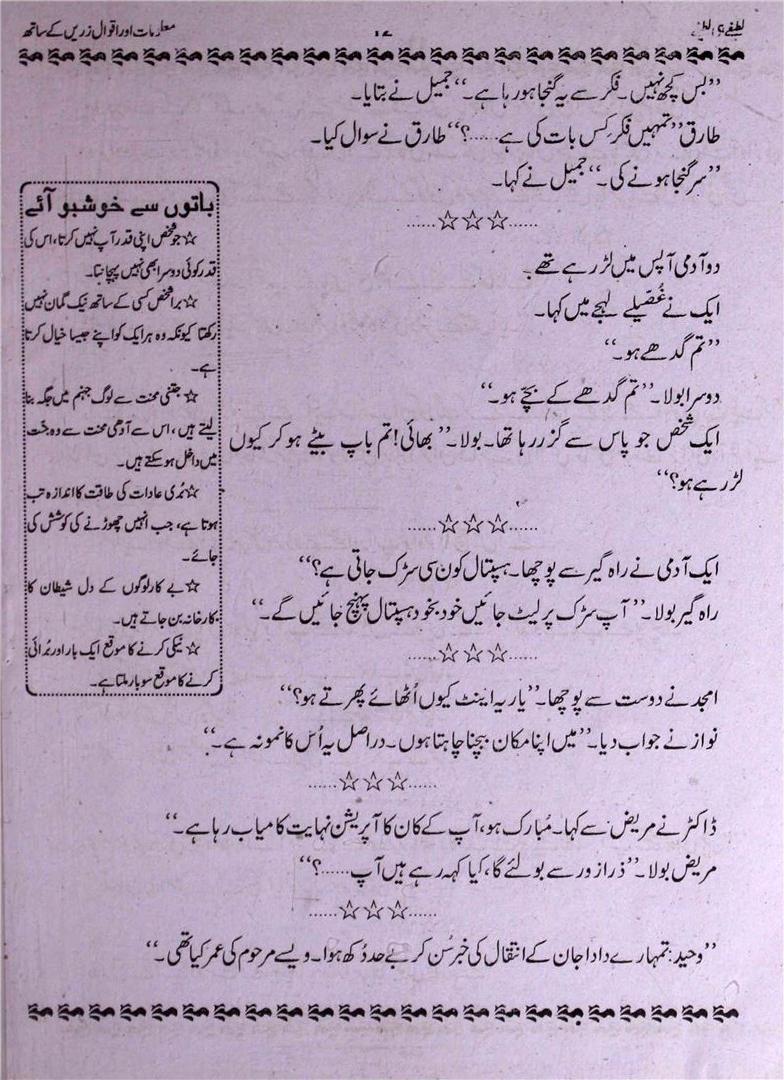 لطیفے ہی لطیفے
۱۷
معلومات اور اقوال زریں کے ساتھ
’’بس کچھ نہیں۔ فکر سے یہ گنجا ہو رہا ہے۔‘‘ جمیل نے بتایا۔
طارق ’’تمہیں فکر کِس بات کی ہے.....؟‘‘ طارق نے سوال کیا۔
’’سر گنجا ہونے کی۔‘‘ جمیل نے کہا۔
......☆☆☆......
دو آدمی آپس میں لڑ رہے تھے۔
ایک نے غُصّیلے لہجے میں کہا۔
’’تم گدھے ہو۔‘‘
دوسرا بولا۔ ’’تم گدھے کے بچّے ہو۔‘‘
ایک شخص جو پاس سے گزر رہا تھا۔ بولا۔ ’’بھائی! تم باپ بیٹے ہو کر کیوں
لڑ رہے ہو؟‘‘
......☆☆☆......
ایک آدمی نے راہ گیر سے پوچھا۔ ہسپتال کون سی سڑک جاتی ہے؟‘‘
راہ گیر بولا۔ ’’آپ سڑک پر لیٹ جائیں خود بخود ہسپتال پہنچ جائیں گے۔‘‘
......☆☆☆......
امجد نے دوست سے پوچھا۔ ’’یار یہ اینٹ کیوں اُٹھائے پھرتے ہو؟‘‘
نواز نے جواب دیا۔ ’’میں اپنا مکان بیچنا چاہتا ہوں۔ دراصل یہ اُس کا نمونہ ہے۔‘‘
......☆☆☆......
ڈاکٹر نے مریض سے کہا۔ مُبارک ہو، آپ کے کان کا آپریشن نہایت کامیاب رہا ہے۔‘‘
مریض بولا۔ ’’ذرا زور سے بولئے گا، کیا کہہ رہے ہیں آپ.....؟‘‘
......☆☆☆......
’’وحید: تمہارے دادا جان کے انتقال کی خبر سُن کر بے حد دُکھ ہوا۔ ویسے مرحوم کی عمر کیا تھی۔‘‘
باتوں سے خوشبو آئے
☆ جو شخص اپنی قدر آپ نہیں کرتا، اس کی
قدر کوئی دوسرا بھی نہیں پہچانتا۔
☆ برا شخص کسی کے ساتھ نیک گمان نہیں
رکھتا کیونکہ وہ ہر ایک کو اپنے جیسا خیال کرتا
ہے۔
☆ جتنی محنت سے لوگ جہنم میں جگہ بنا
لیتے ہیں، اس سے آدھی محنت سے وہ جنّت
میں داخل ہو سکتے ہیں۔
☆ بُری عادات کی طاقت کا اندازہ تب
ہوتا ہے، جب انہیں چھوڑنے کی کوشش کی
جائے۔
☆ بے کار لوگوں کے دل شیطان کا
کارخانہ بن جاتے ہیں۔
☆ نیکی کرنے کا موقع ایک بار اور بُرائی
کرنے کا موقع سو بار ملتا ہے۔